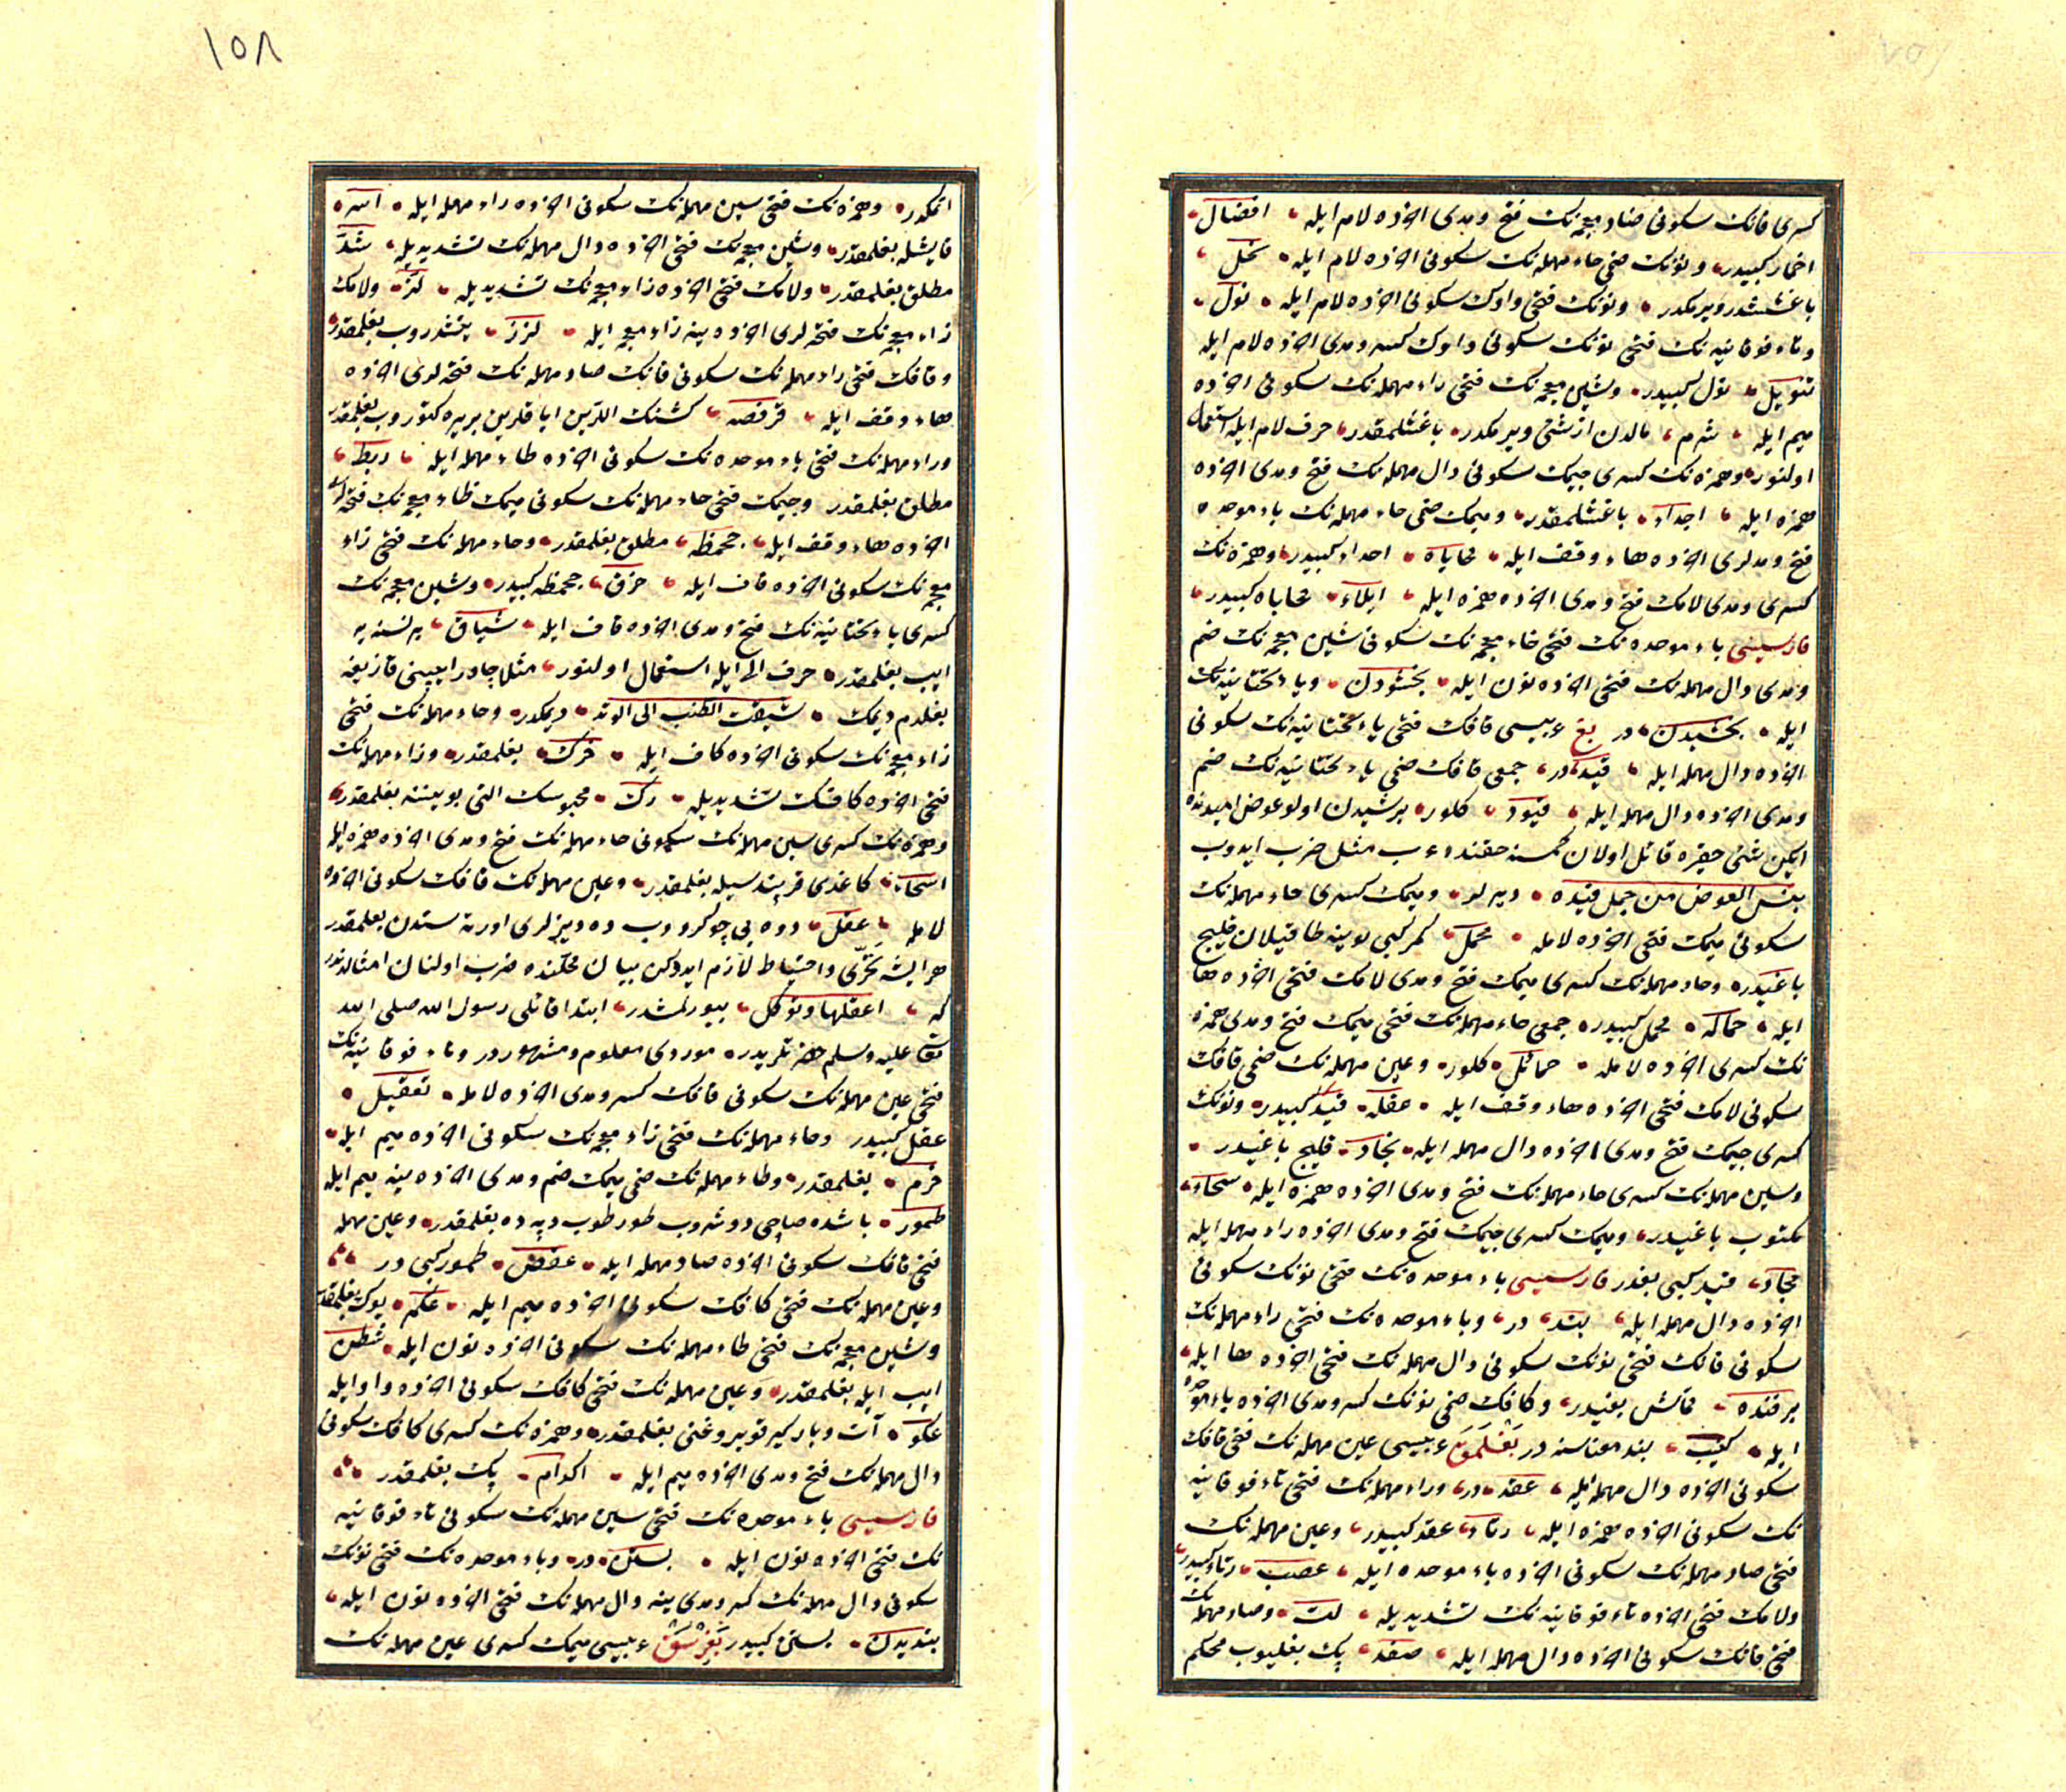 كسری فانك سكونی ضاد معجمه‌نك فتح و مدی اخرده لام ایله افضال
اخمار كبیدر ونونك ضمی حاء مهمله‌نك سكونی اخرده لام ایله نحل
باغشدر ویرمكدر ونونك فتحی واوك سكونی اخرده لام ایله نول
وتاء فوقانیه‌نك فتحی نونك سكونی واوك كسر ومدی اخرده لام ایله
تنویل نول كبیدر وشین معجمه‌نك فتحی راء مهمله‌نك سكونی اخرده
میم ایله شرم مالدن ازشئ ویرمكدر باغشلمقدر حرف لام ایله استعمال
اولنور وهمزه‌نك كسری جیمك سكونی دال مهمله‌نك فتح ومدی اخرده
همزه ایله اجداء باغشلمقدر ومیمك ضمی حاء مهمله‌نك باء موحده
فتح ومدلری اخرده هاء وقف ایله محاباه احداء كبیدر وهمزه‌نك
كسری ومدی لامك فتح ومدی اخرده همزه ایله ایلاء محاباه كبیدر
فارسیسی باء موحده‌نك فتحی خاء معجمه‌نك سكونی شین معجمه‌نك ضم
ومدی دال مهمله‌نك فتحی اخرده نون ایله بخشودن ویاء تحتانیه‌نك
ایله بخشیدن در بغ عربیسی قافك فتحی یاء تحتانیه‌نك سكونی
اخرده دال مهمله ایله قید در جمعی قافك ضمی یاء تحتانیه‌نك ضم
ومدی اخرده دال مهمله ایله قیود كلور برشیدن اولو عوض امیدنده
ایكن شئ حقیره قائل اولان كمسنه حقنده عرب مثل ضرب ایدوب
بئس العوض من جمل قیده دیرلر ومیمك كسری حاء مهمله‌نك
سكونی میمك فتحی اخرده لامله محمل كمر كبی بوینه طاقیلان قلیج
باغیدر وحاء مهمله‌نك كسری میمك فتح ومدی لامك فتحی اخرده هاء
ایله حماله محمل كبیدر جمعی حاء مهمله‌نك فتحی میمك فتح ومدی همزه
نك كسری اخرده لامله حمائل كلور وعین مهمله‌نك ضمی قافك
سكونی لامك فتحی اخرده هاء وقف ایله عقله قید كبیدر ونونك
كسری جیمك فتح ومدی اخرده دال مهمله ایله نجاد قلیج باغیدر
وسین مهمله‌نك كسری حاء مهمله‌نك فتح ومدی اخرده همزه ایله سحاء
مكتوب باغیدر ومیمك كسری جیمك فتح ومدی اخرده راء مهمله ایله
مجار قید كبی بغدر فارسیسی باء موحده‌نك فتحی نونك سكونی
اخرده دال مهمله ایله بند در وباء موحده‌نك فتحی راء مهمله‌نك
سكونی فانك فتحی نونك سكونی دال مهمله‌نك فتحی اخرده ها ایله
برفنده قماش بغیدر وكافك ضمی نونك كسر ومدی اخرده باء موحده
ایله كنیب بند معناسنه در بغلمق عربیسی عین مهمله‌نك فتحی قافك
سكونی اخرده دال مهمله ایله عقد در وراء مهمله‌نك فتحی تاء فوقانیه
نك سكونی اخرده همزه ایله رتاء عقد كبیدر وعین مهمله‌نك
فتحی صاد مهمله‌نك سكونی اخرده باء موحده ایله عصب رتاء كبیدر
ولامك فتحی اخرده تاء فوقانیه‌نك تشدیدیله لت وصاد مهمله‌نك
فتحی فانك سكونی اخرده دال مهمله ایله صفد پك بغلیوب محكم
١٥٨
اتمكدر وهمزه‌نك فتحی سین مهمله‌نك سكونی اخرده راء مهمله ایله اسر
قایشله بغلمقدر وشین معجمه‌نك فتحی اخرده دال مهمله‌نك تشدیدیله شد
مطلق بغلمقدر ولامك فتحی اخرده زاء معجمه‌نك تشدیدیله لز ولامك
زاء معجمه‌نك فتحه‌لری اخرده ینه زاء معجمه ایله لزز بتشدروب بغلمقدر
وقافك فتحی راء مهمله‌نك سكونی فانك صاد مهمله‌نك فتحه‌لری اخرده
هاء وقف ایله قرفصه كشنك اللرین ایاقلرین بربره كتوروب بغلمقدر
وراء مهمله‌نك فتحی باء موحده‌نك سكونی اخرده طاء مهمله ایله ربط
مطلق بغلمقدر وجیمك فتحی حاء مهمله‌نك سكونی میمك ظاء معجمه‌نك فتحه‌لری
اخرده هاء وقف ایله جحمظه مطلق بغلمقدر وحاء مهمله‌نك فتحی زاء
معجمه‌نك سكونی اخرده قاف ایله حزق جحمظه كبیدر وشین معجمه‌نك
كسری یاء تحتانیه‌نك فتح ومدی اخرده قاف ایله شیاق بر نسنه‌یه
ایب بغلمقدر حرف الی ایله استعمال اولنور مثلا چادر ایبنی قازیغه
بغلدم دیمك شیقت الطنب الی الوتد دیمكدر وحاء مهمله‌نك فتحی
زاء معجمه‌نك سكونی اخرده كاف ایله حزك بغلمقدر وراء مهمله‌نك
فتحی اخرده كافك تشدیدیله رك محبوسك التی بویننه بغلمقدر
وهمزه‌نك كسری سین مهمله‌نك سكونی حاء مهمله‌نك فتح ومدی اخرده همزه ایله
اسحاء كاغدی قربندسیله بغلمقدر وعین مهمله‌نك قافك سكونی اخرده
لامله عقل دوه یی چوكروب ده دیزلری اورته سندن بغلمقدر
هر ایشه تحری واحتیاط لازم ایدوكن بیان محلنده ضرب اولنان امثالدندر
كه اعقلها وتوكل بیورلمشدر ابتدا قائلی رسول الله صلی الله
تعالی علیه وسلم حضرتلریدر موردی معلوم ومشهوردر وتاء فوقانیه‌نك
فتحی عین مهمله‌نك سكونی قافك كسر ومدی اخرده لامله تعقیل
عقل كبیدر وحاء مهمله‌نك فتحی زاء معجمه‌نك سكونی اخرده میم ایله
حزم بغلمقدر وطاء مهمله‌نك ضمی میمك ضم ومدی اخرده ینه میم ایله
طمور باشده صاچی دوشروب طور طوب دیه ده بغلمقدر وعین مهمله
فتحی قافك سكونی اخرده صاد مهمله ایله عقص طمور كبی در
وعین مهمله‌نك فتحی كافك سكونی اخرده میم ایله عكم یوك بغلمقدر
وشین معجمه‌نك فتحی طاء مهمله‌نك سكونی اخرده نون ایله شطن
ایب ایله بغلمقدر وعین مهمله‌نك فتحی كافك سكونی اخرده واو ایله
عكو آت وباركیر قویروغنی بغلمقدر وهمزه‌نك كسری كافك سكونی
دال مهمله‌نك فتح ومدی اخرده میم ایله اكدام پك بغلمقدر
فارسیسی باء موحده‌نك فتحی سین مهمله‌نك سكونی تاء فوقانیه
نك فتحی اخرده نون ایله بستن در وباء موحده‌نك فتحی نونك
سكونی دال مهمله‌نك كسر ومدی ینه دال مهمله‌نك فتحی اخرده نون ایله
بندیدن بستن كبیدر عربیسی میمك كسری عین مهمله‌نك